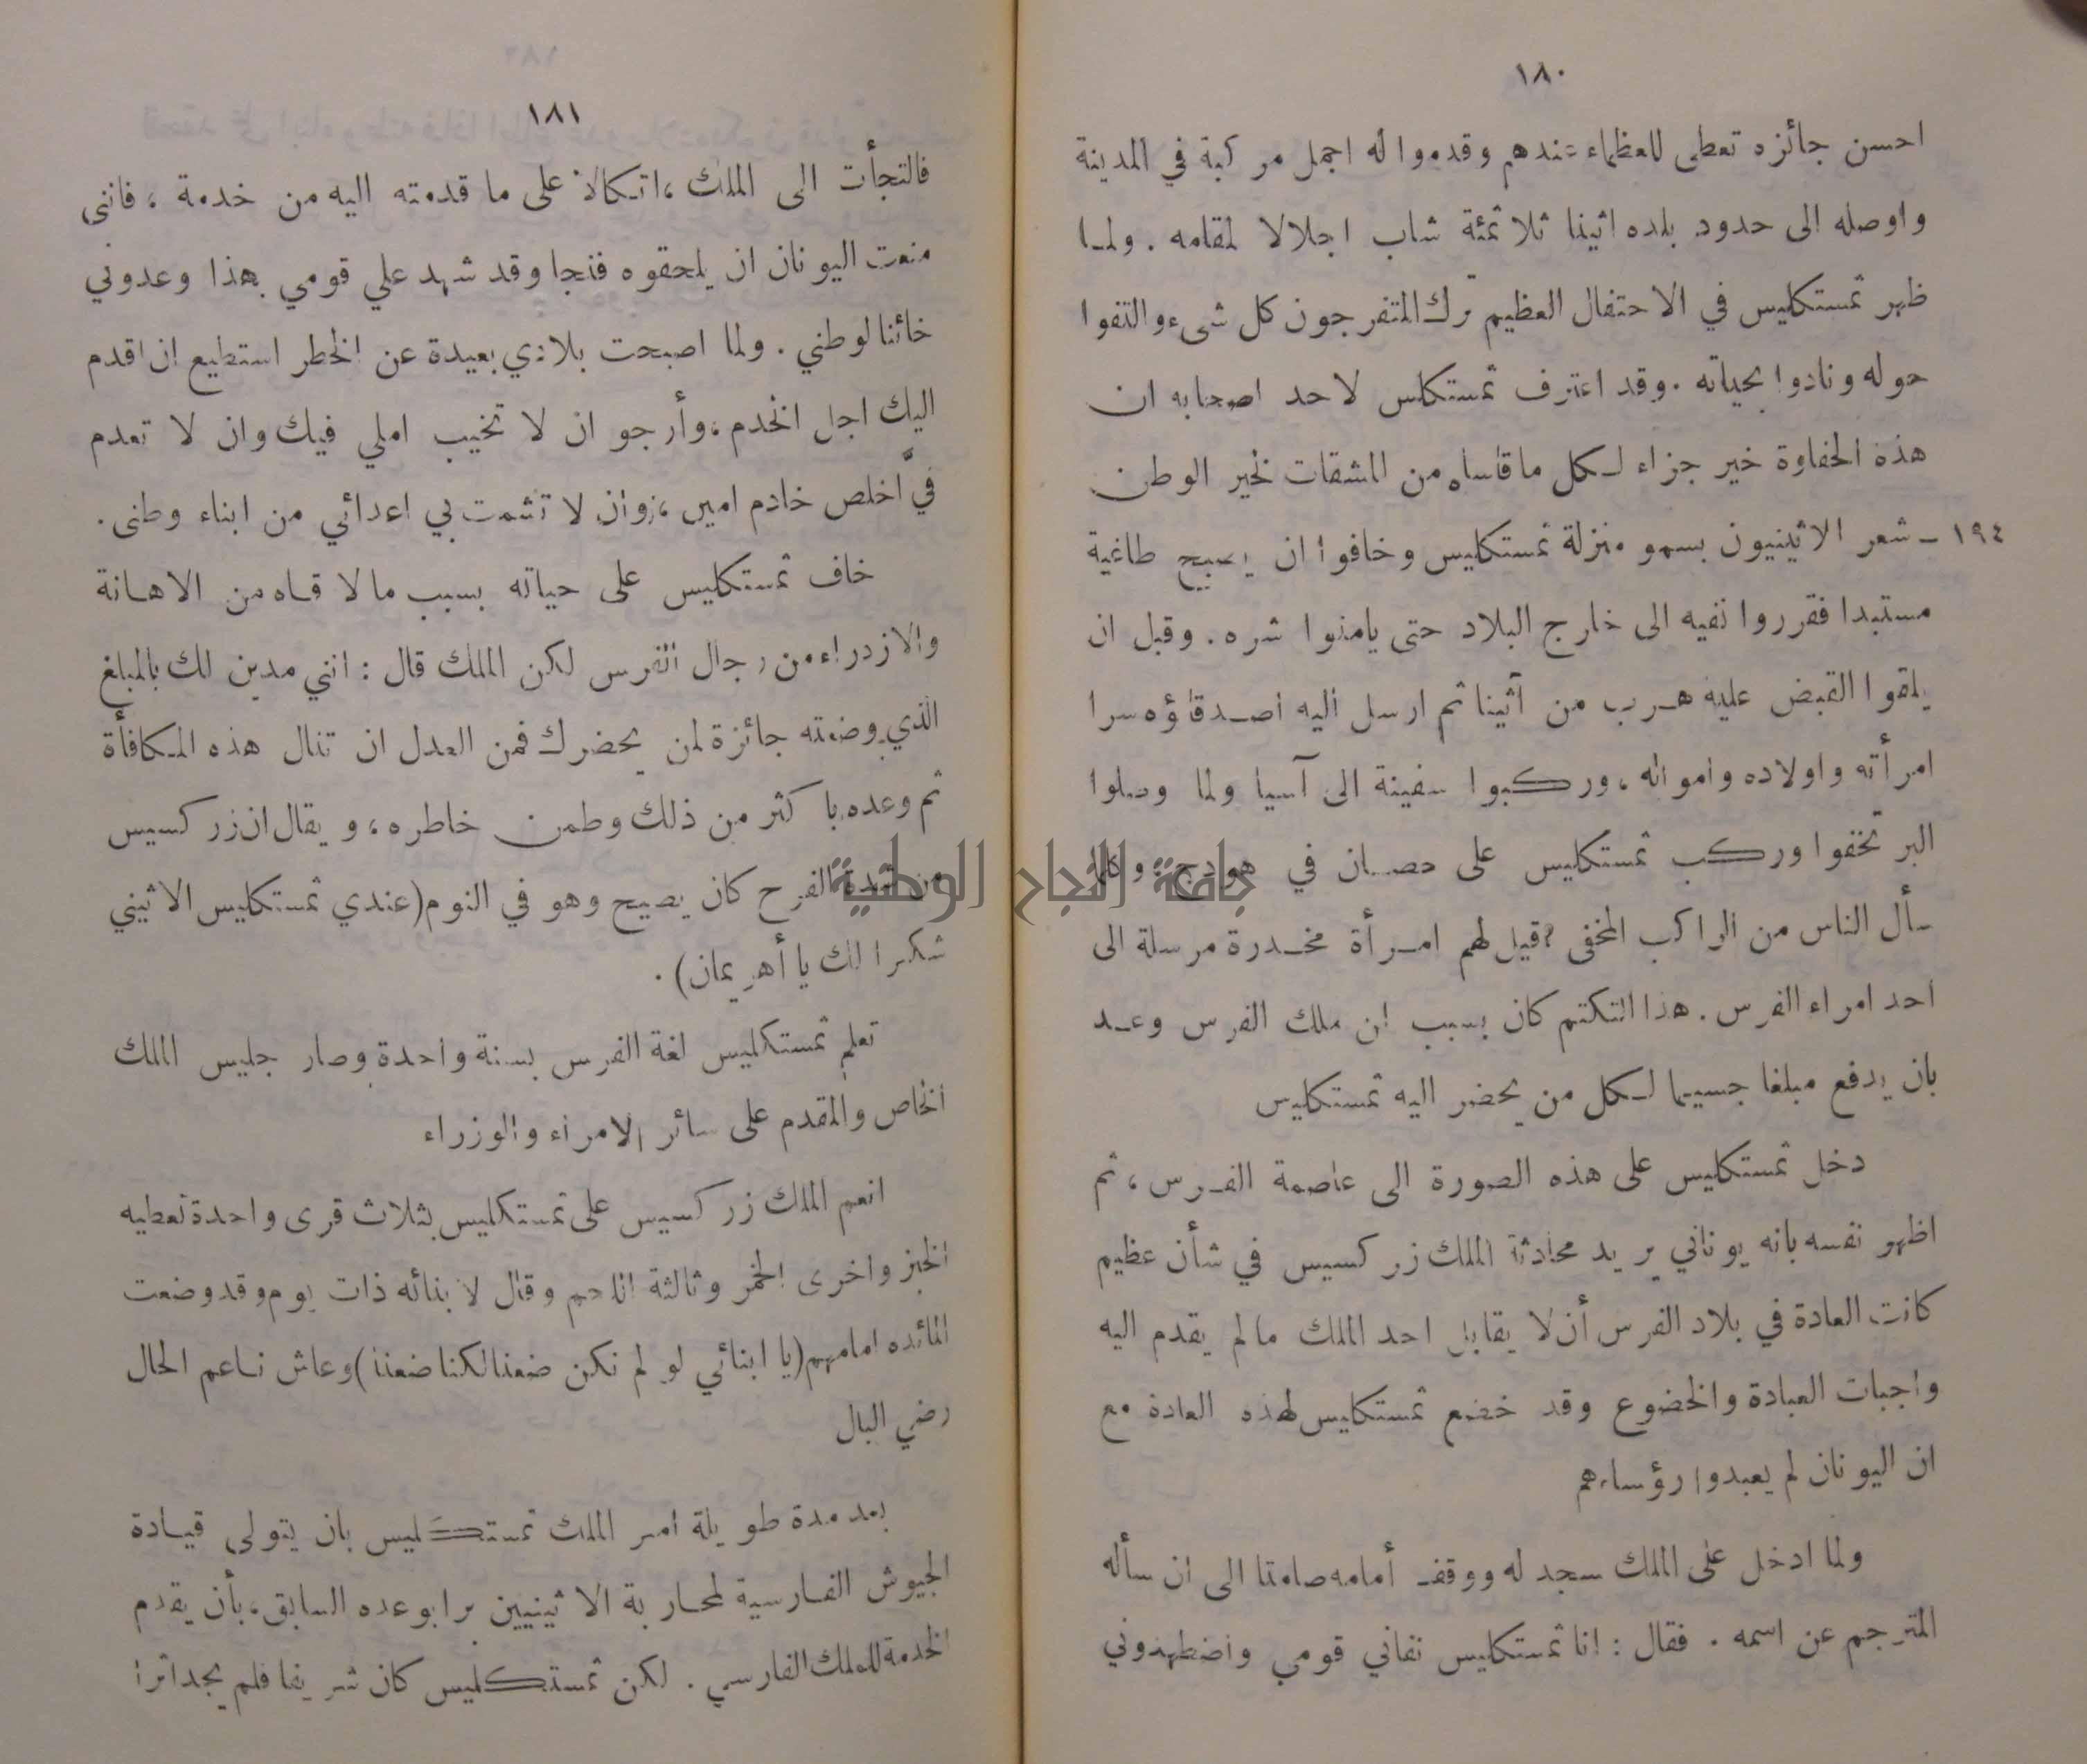 ١٨٠
احسن جائزه تعطى للعظماء عندهم وقدموا له اجمل مركبة في المدينة
واوصله الى حدود بلده اثينا ثلاثمئة شاب اجلالا لمقامه . ولما
ظهر تمستكليس في الاحتفال العظيم ترك المتفرجون كل شىء والتفوا
حوله ونادوا بحياته . وقد اعترف تمستكلس لاحد اصحابه ان
هذه الحفاوة خير جزاء لكل ماقاساه من المشقات لخير الوطن
١٩٤ – شعر الاثينيون بسمو منزلة تمستكليس وخافوا ان يصبح طاغية
مستبدا فقرروا نفيه الى خارج البلاد حتى يامنوا شره . وقبل ان
يلقوا القبض عليه هرب من آثينا ثم ارسل اليه اصدقاؤه سرا
امرأته واولاده وامواله ، وركبوا سفينة الى آسيا ولما وصلوا
البر تخفوا وركب تمستكليس على حصان في هودج . وكلما
سأل الناس من الراكب المخفى ؟ قيل لهم امرأة مخدرة مرسلة الى
احد امراء الفرس . هذا التكتم كان بسبب ان ملك الفرس وعد
بان يدفع مبلغا جسيما لكل من يحضر اليه تمستكليس
دخل تمستكليس على هذه الصورة الى عاصمة الفرس ، ثم
اظهر نفسه بانه يوناني يريد محادثة الملك زركسيس في شأن عظيم
كانت العادة في بلاد الفرس أن لا يقابل احد الملك مالم يقدم اليه
واجبات العبادة والخضوع وقد خضع تمستكليس لهذه العادة مع
ان اليونان لم يعبدوا رؤساءهم
ولما ادخل على الملك سجد له ووقف أمامه صامتا الى ان سأله
المترجم عن اسمه . فقال : انا تمستكليس نفاني قومي واضطهدوني
١٨١
فالتجأت الى الملك ، اتكالا على ما قدمته اليه من خدمة ، فانني
منعت اليونان ان يلحقوه فنجا وقد شهد علي قومي بهذا وعدوني
خائنا لوطني . ولما اصبحت بلادي بعيدة عن الخطر استطيع ان اقدم
اليك اجل الخدم ، وأرجو ان لا تخيب املي فيك وان لا تعدم
فيَّ اخلص خادم امين ، وان لا تشمت بي اعدائي من ابناء وطنى .
خاف تمستكليس على حياته بسبب ما لاقاه من الاهانة
والازدراء من رجال الفرس لكن الملك قال : انني مدين لك بالمبلغ
الذي وضعته جائزة لمن يحضرك فمن العدل ان تنال هذه المكافأة
ثم وعده باكثر من ذلك وطمن خاطره ، ويقال ان زركسيس
من شدة الفرح كان يصيح وهو في النوم (عندي تمستكليس الاثيني
شكرا لك يا أهريمان) .
تعلم تمستكليس لغة الفرس بسنة واحدة وصار جليس الملك
الخاص والمقدم على سائر الامراء والوزراء
انعم الملك زركسيس على تمستكليس بثلاث قرى واحدة تعطيه
الخبز واخرى الخمر وثالثة اللحم وقال لابنائه ذات يوم وقد وضعت
المائده امامهم (يا ابنائي لو لم نكن ضعنا لكنا ضعنا) وعاش ناعم الحال
رضي البال
بعد مدة طويلة امر الملك تمستكليس بان يتولى قيادة
الجيوش الفارسية لمحاربة الاثينيين برا بوعده السابق ، بأن يقدم
الخدمة للملك الفارسي . لكن تمستكليس كان شريفا فلم يجد اثرا
جامعة النجاح الوطنية